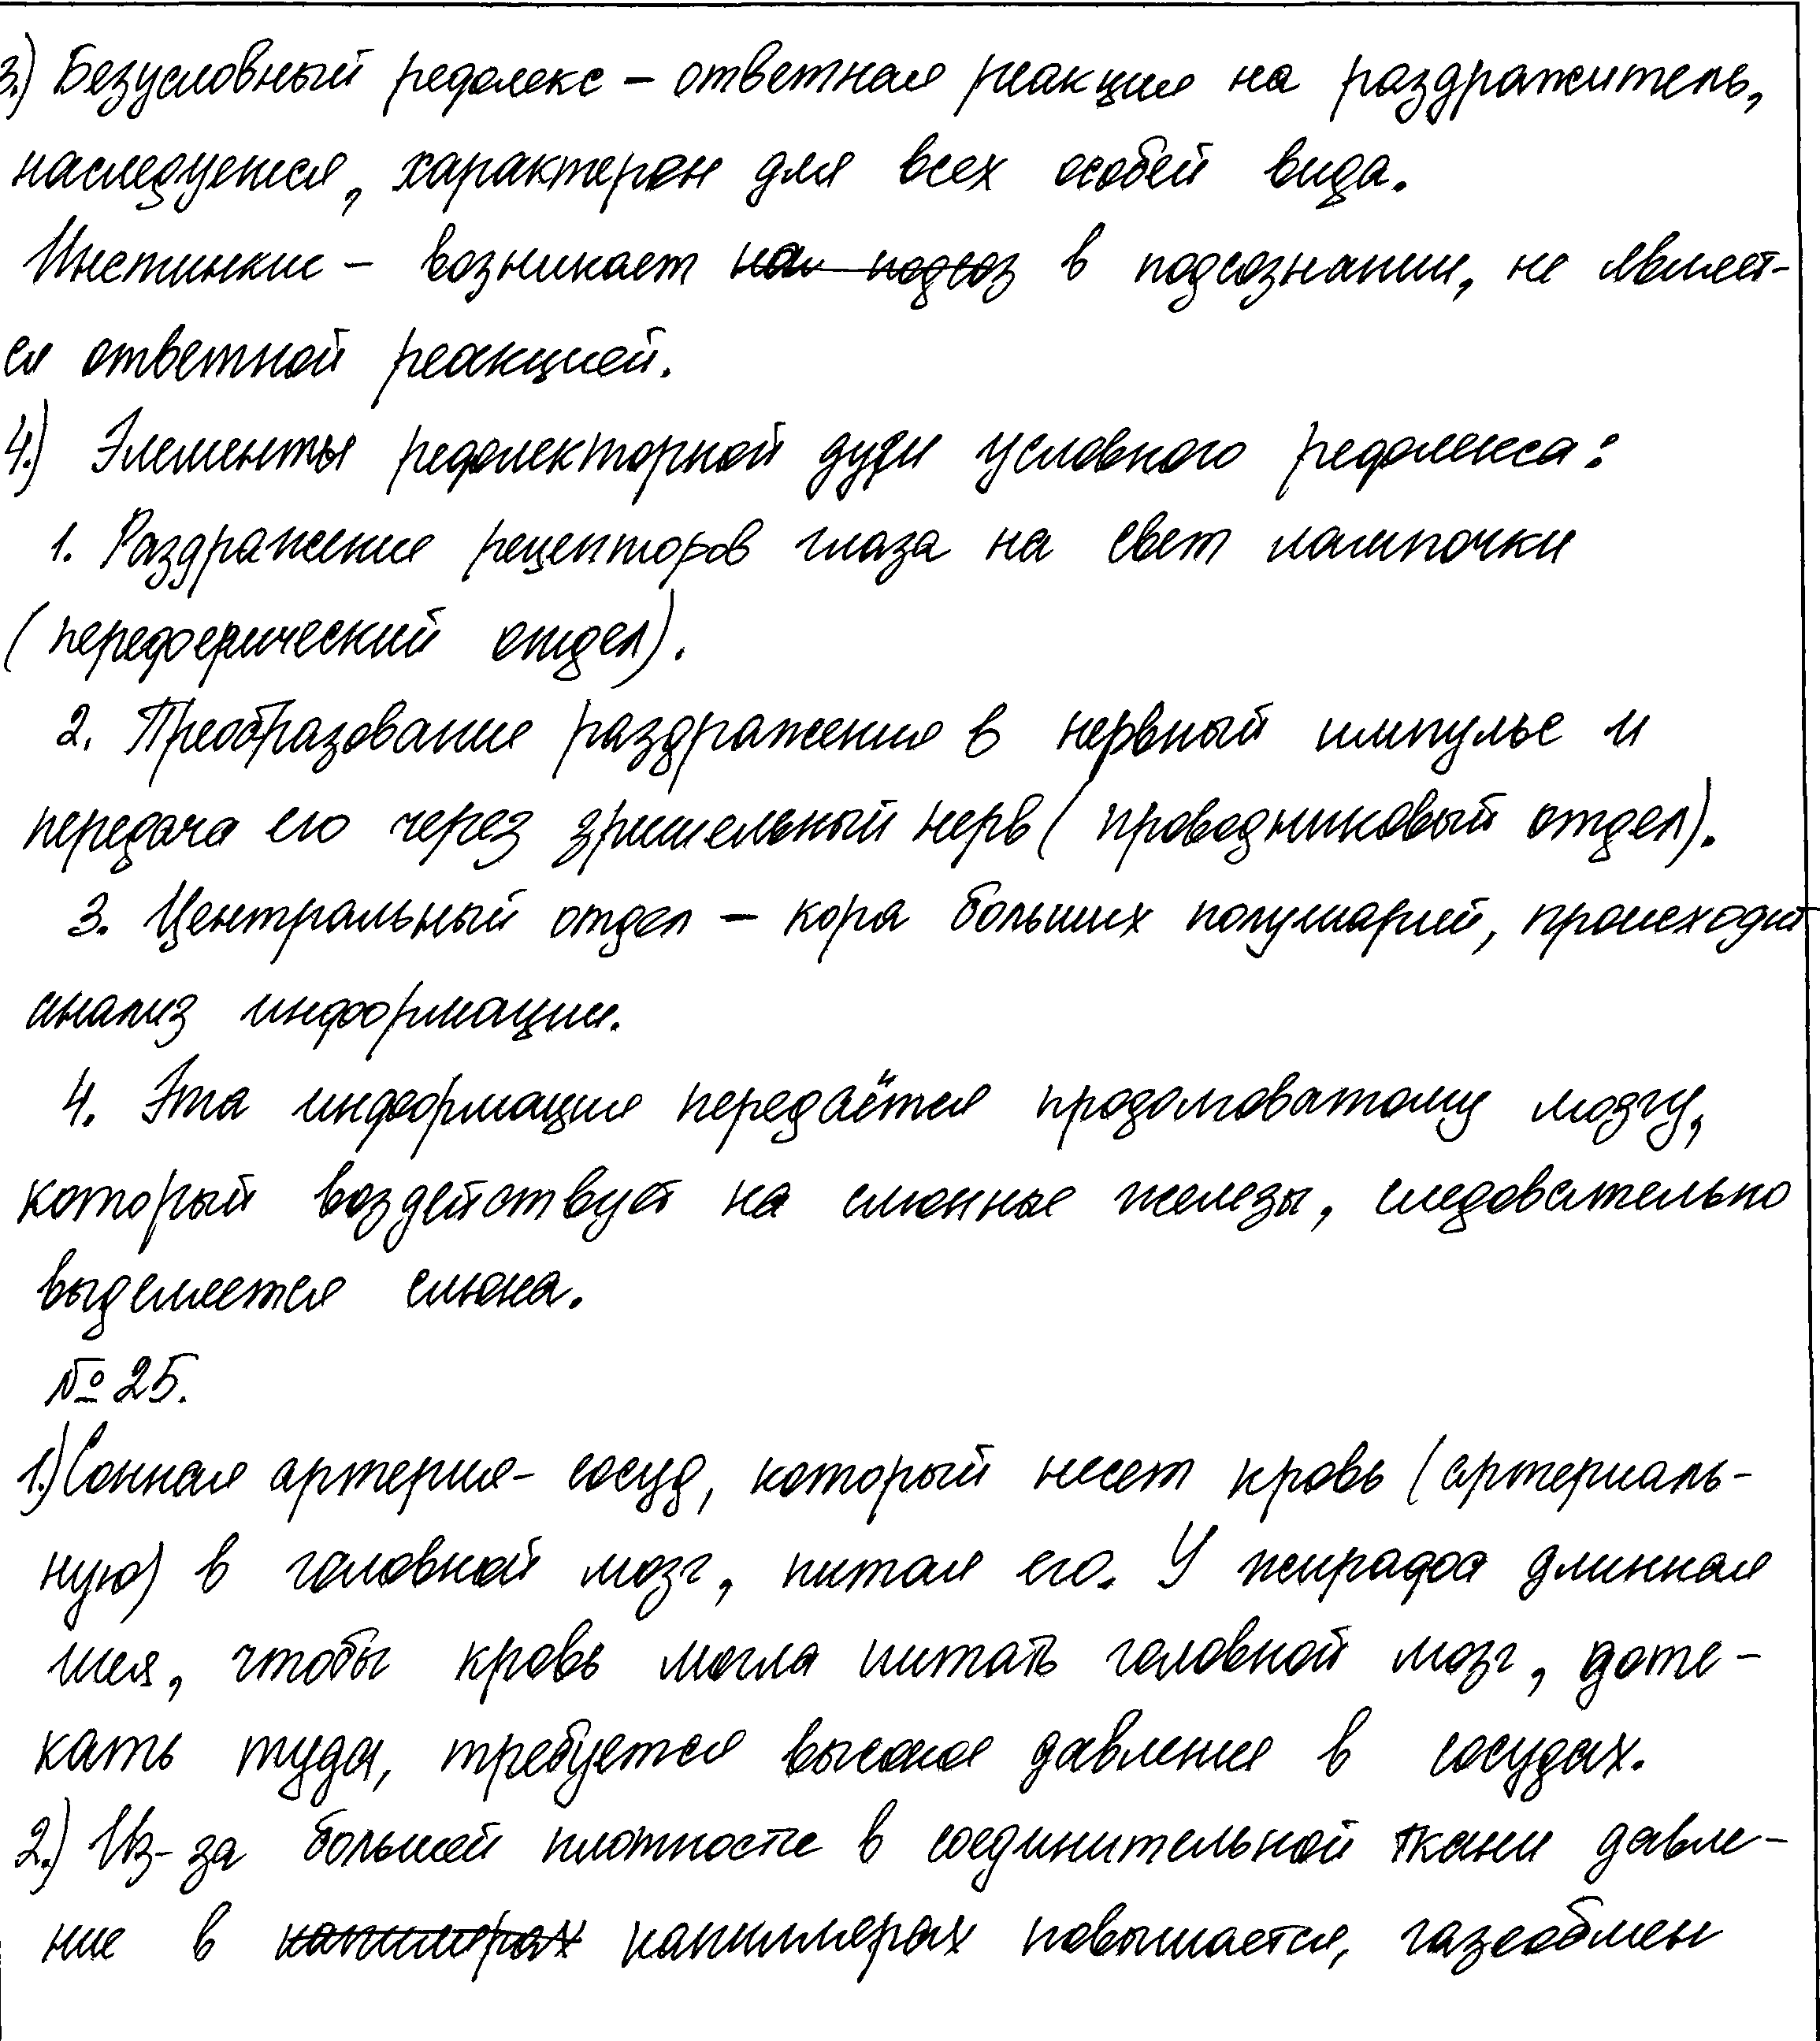 3.) Безусловный рефлекс – ответная реакция на раздражитель,
наследуется, характерен для всех особей вида.
Инстинкт – возникает на подсоз в подсознании, не являет-
ся ответной реакцией.
4.) Элементы рефлекторной дуги условного рефлекса:
1. Раздражение рецепторов глаза на свет лампочки
(переферический отдел).
2. Преобразование раздражения в нервный импульс и
передача его через зрительный нерв (проводниковый отдел).
3. Центральный отдел – кора больших полушарий, происходит
анализ информации.
4. Эта информация передаётся продолговатому мозгу,
который воздействует на слюнные железы, следовательно
выделяется слюна.
№ 25.
1.) Сонная артерия – сосуд, который несет кровь (артериаль-
ную) в головной мозг, питая его. У жирафа длинная
шея, чтобы кровь могла питать головной мозг, доте-
кать туда, требуется высокое давление в сосудах.
2.) Из-за большей плотности в соединительной ткани давле-
ние в капилярах капиллярах повышается, газообмен